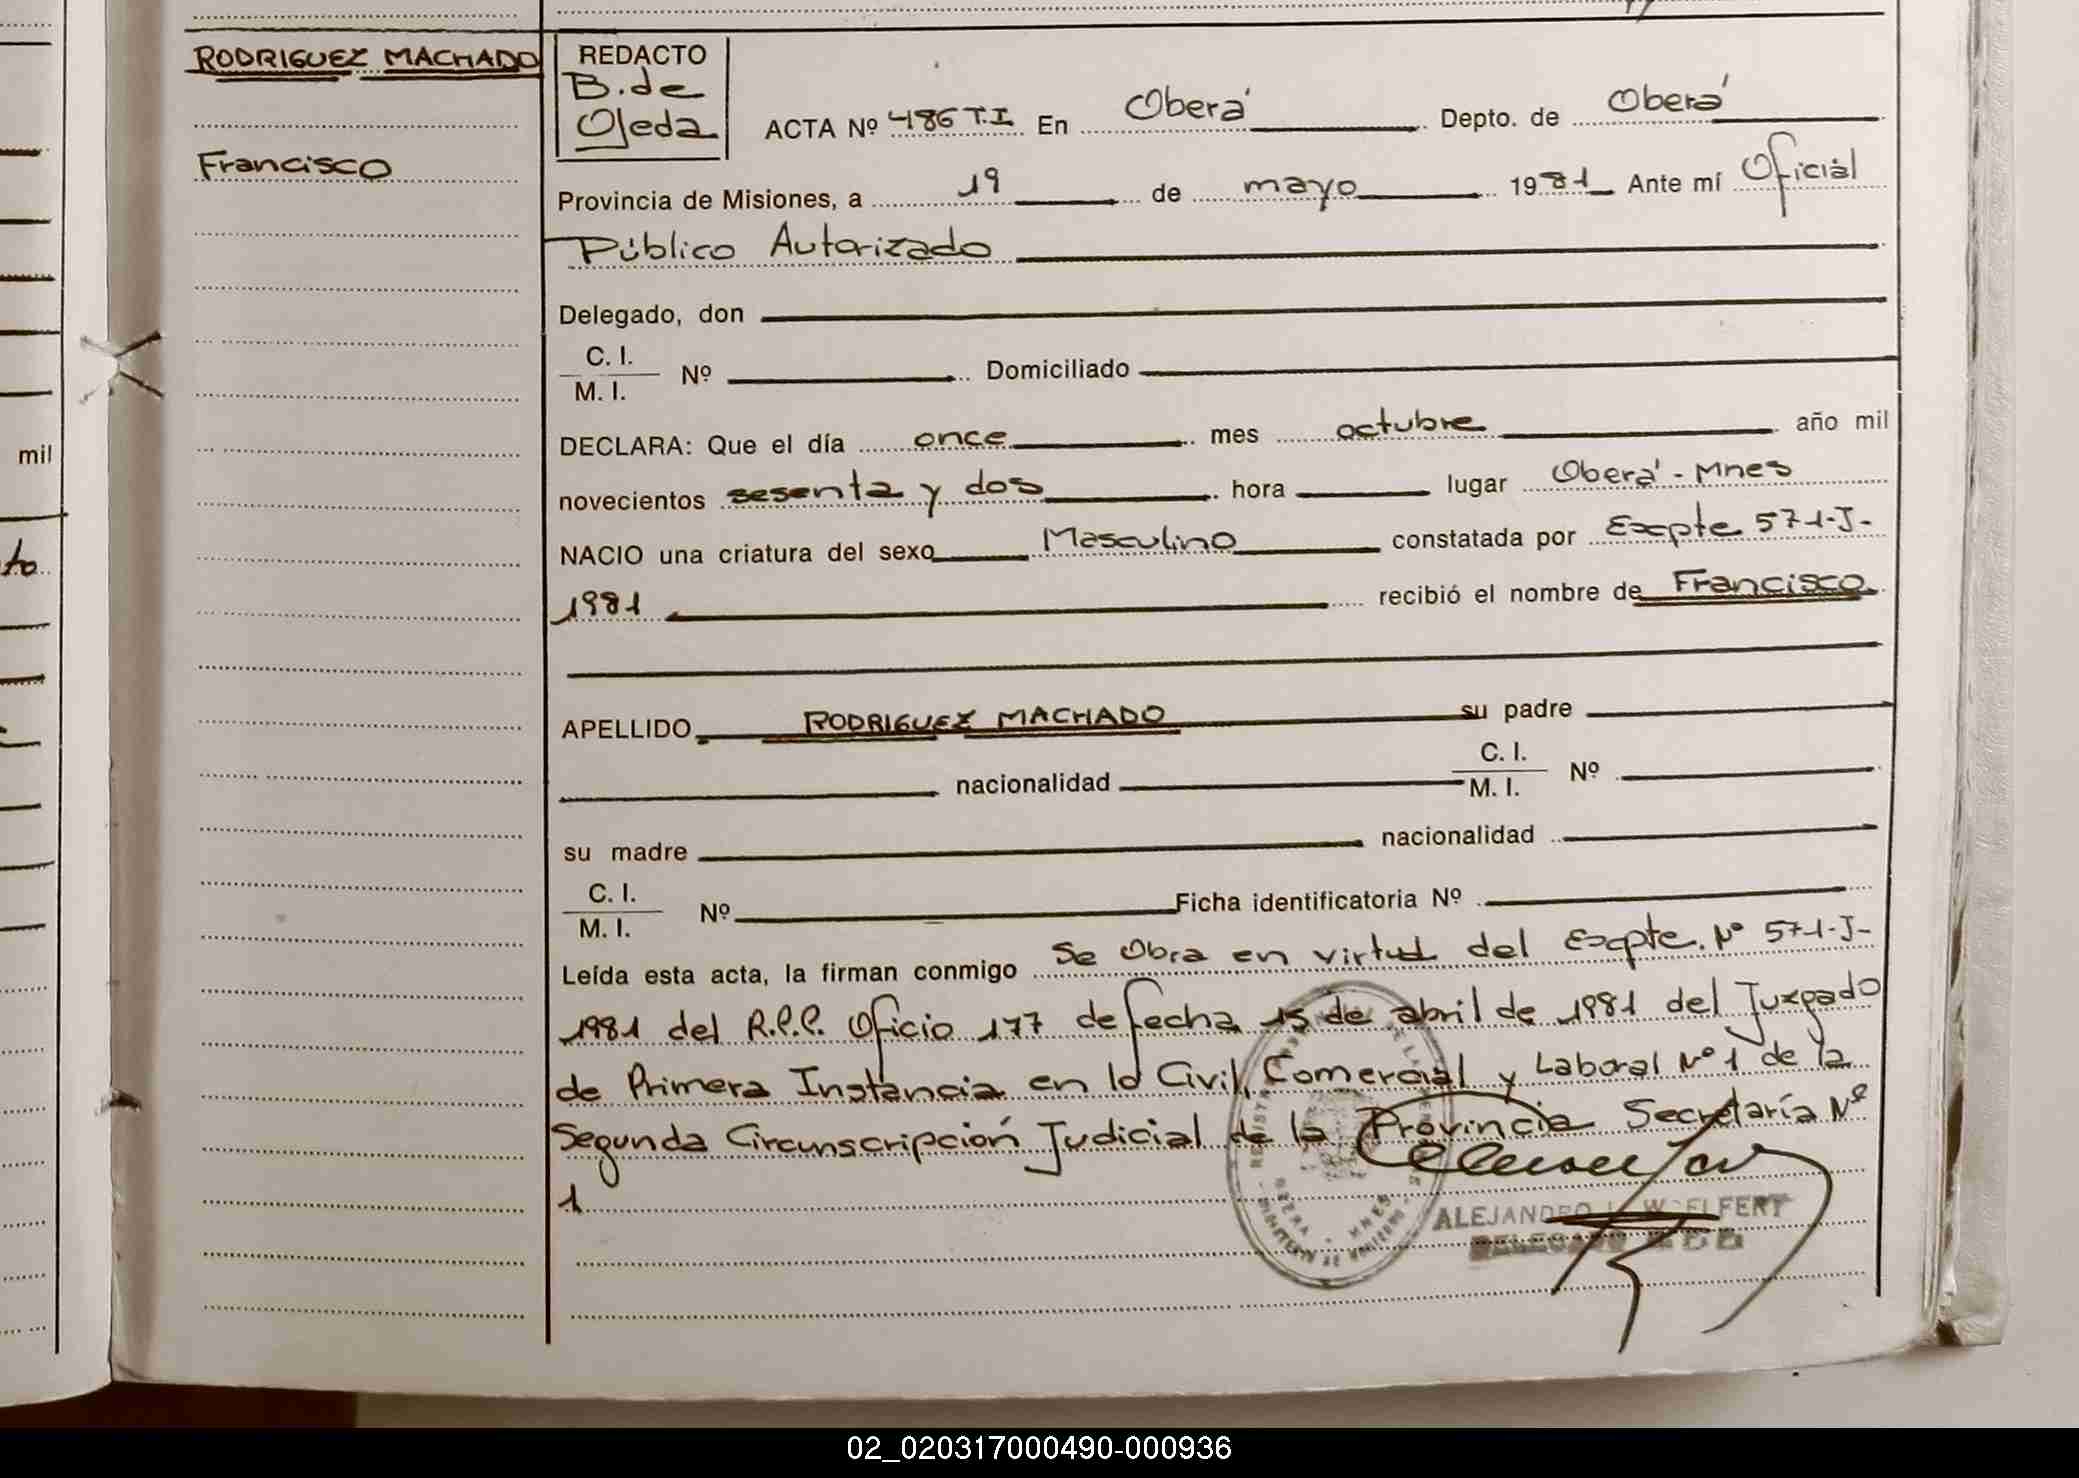 RODRIGUEZ MACHADO
Francisco
mil
to
REDACTO
B. de
Ojeda
ACTA Nº 486 T.I En Oberá Depto. de Oberá
Provincia de Misiones, a 19 de mayo 1981 Ante mí Oficial
Público Autorizado
Delegado, don
C. I.
M. I. Nº Domiciliado
DECLARA: Que el día once mes octubre año mil
novecientos sesenta y dos hora lugar Oberá - Mnes
NACIO una criatura del sexo Masculino constatada por Expte 571-J-
1981 recibió el nombre de Francisco
APELLIDO RODRIGUEZ MACHADO su padre
nacionalidad C. I. M. I. Nº
su madre nacionalidad
C. I.
M. I. Nº Ficha identificatoria Nº
Leída esta acta, la firman conmigo Se Obra en virtud del Expte. Nº 571-J-
1981 del R.P.P. Oficio 177 de fecha 15 de abril de 1981 del Juzgado
de Primera Instancia en lo Civil, Comercial y Laboral Nº 1 de la
Segunda Circunscripción Judicial de la Provincia Secretaría Nº
1
ALEJANDRO
DELEGADO
02_020317000490-000936